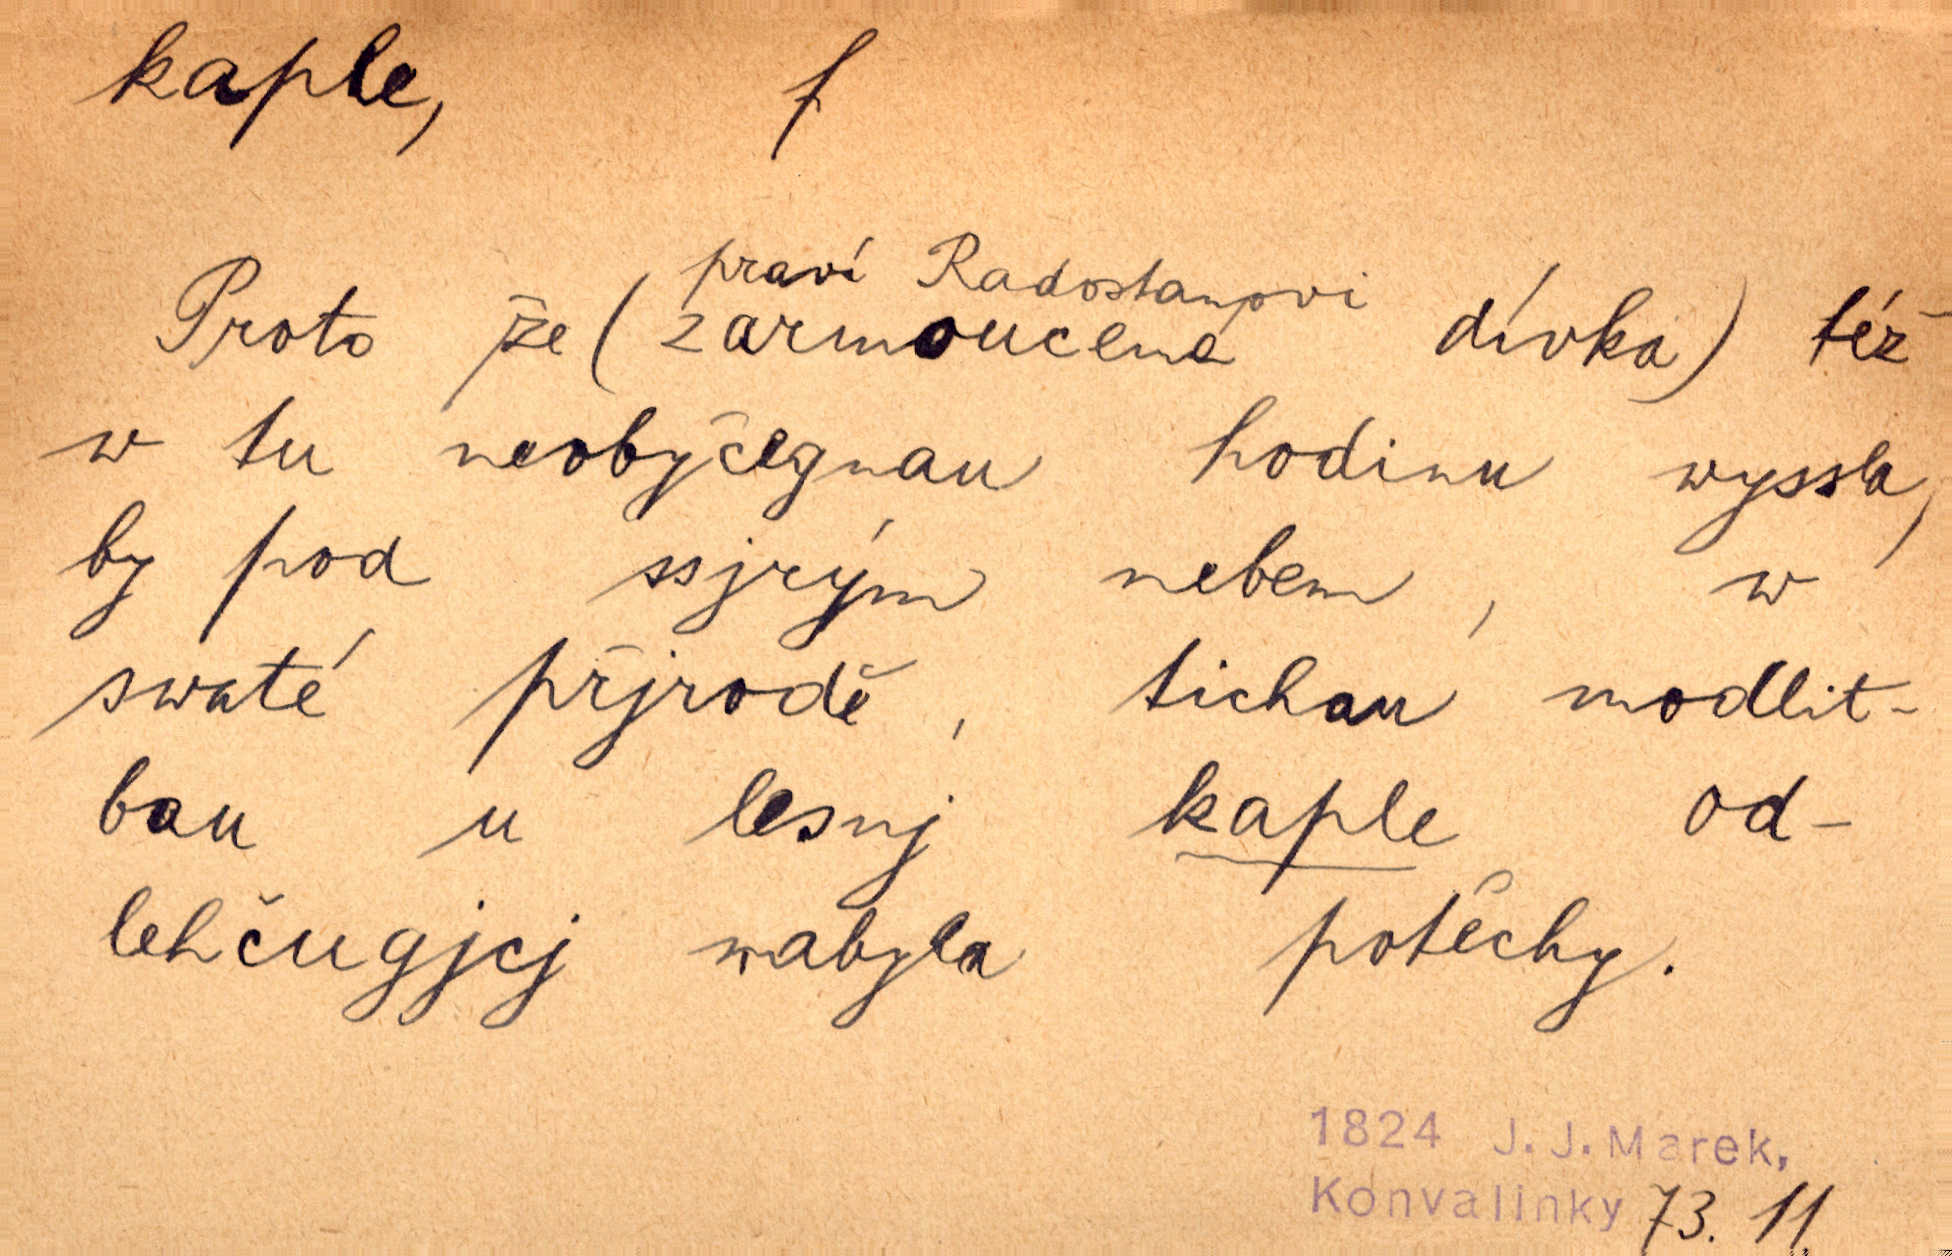 kaple, f
praví Radostanovi
Proto že (zarmoucená dívka) též
w tu neobyčegnau hodinu wyssla,
by pod ssjrým nebem, w
swaté přjrodě, tichau modlit-
bau u lesnj kaple od-
lehčugjcj nabyla potěchy.
1824 J.J.Marek,
Konvalinky 73. 11